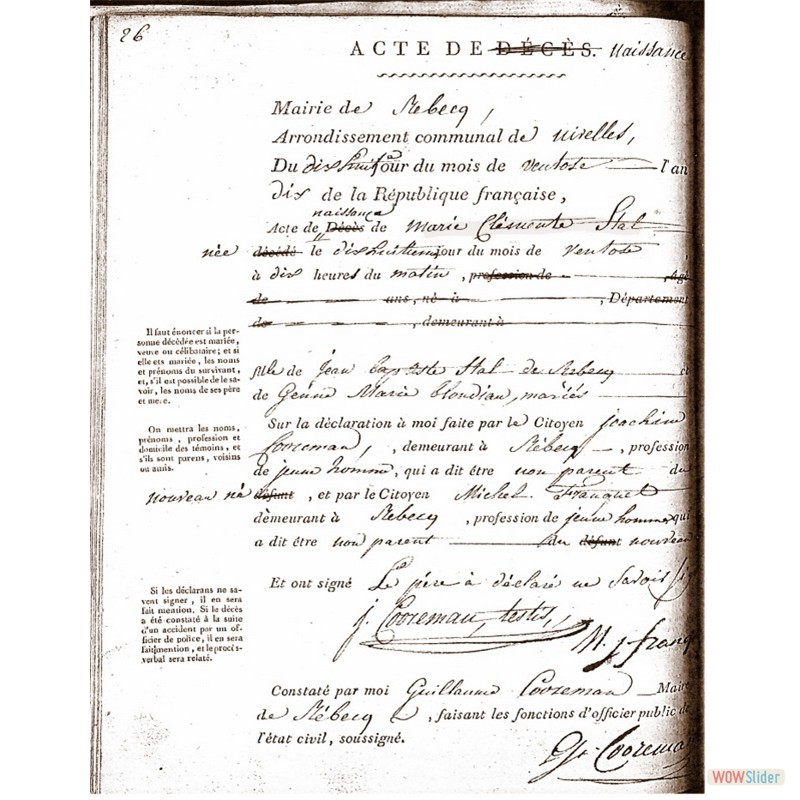 26
ACTE DE DÉCÈS. naissance
Mairie de Rebecq,
Arrondissement communal de nivelles,
Du dixhuit jour du mois de ventose l'an
dix de la République française,
naissance
Acte de Décès de marie Clémente Stal
née décédé le dixhuitieme jour du mois de ventose
à dix heures du matin, profession de , âgé
de ans, né à , Département
de , demeurant à
Il faut énoncer si la per-
sonne décédée est mariée,
veuve ou célibataire; et si
elle ets mariée, les noms
et prénoms du survivant,
et, s'il est possible de le sa-
voir, les noms de ses père
et mère.
fille de jean baptiste Stal de Rebecq et
de Marie blondiau, mariés
On mettra les noms,
prénoms, profession et
domicile des témoins, et
s'ils sont parens, voisins
ou amis.
Sur la déclaration à moi faite par le Citoyen joachim
Cooreman, , demeurant à Rebecq , profession
de jeune homme, qui a dit être non parent du
nouveau né défunt, et par le Citoyen Michel Franquet
dèmeurant à Rebecq , profession de jeune homme qui
a dit être non parent du défunt nouveau
Si les déclarans ne sa-
vent signer, il en sera
fait mention. Si le décès
a été constaté à la suite
d'un accident par un of-
ficier de police, il en sera
fait mention, et le procès-
verbal sera relaté.
Et ont signé Le père à déclaré ne Savoir
j. Cooreman, testis,
M. j franq
Constaté par moi Guillaume Cooreman Maire
de Rébecq , faisant les fonctions d'officier public de
l'état civil, soussigné.
G. Cooreman
WOWSlider